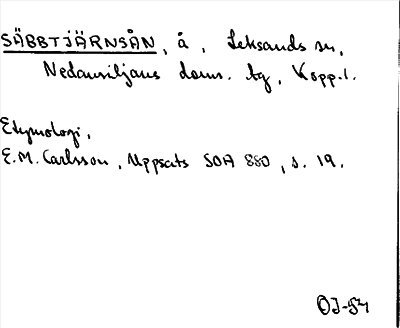 SÄBBTJÄRNSÅN, å, Leksands sn,
Nedansiljans doms. tg, Kopp.l.
Etymologi,
E.M. Carlsson, Uppsats SOA 880, s. 19.
ÖJ-54